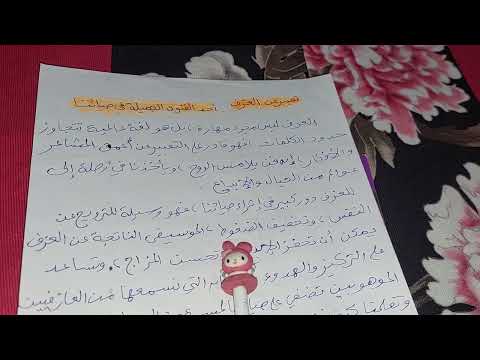 تعبير عن العزف : أحد الفنون الجميلة في حياتنا
العزف ليس مجرد مهارة ، بل هو لغة عالمية تتجاوز
حدود الكلمات . فهو قادر على التعبير عن أعمق المشاعر
والأفكار ، إنه فن يلامس الروح ، ويأخذنا في رحلة إلى
عوالم من الخيال والإبداع .
للعزف دور كبير في إثراء حياتنا ، فهو وسيلة للترويح عن
النفس ، وتخفيف الضغوط ، الموسيقى الناتجة عن العزف
يمكن أن تحفز الإ تحسن المزاج ، وتساعد
على التركيز والهدوء التي نسمعها من العازفين
الموهوبين تضفي على
وتعلمنا